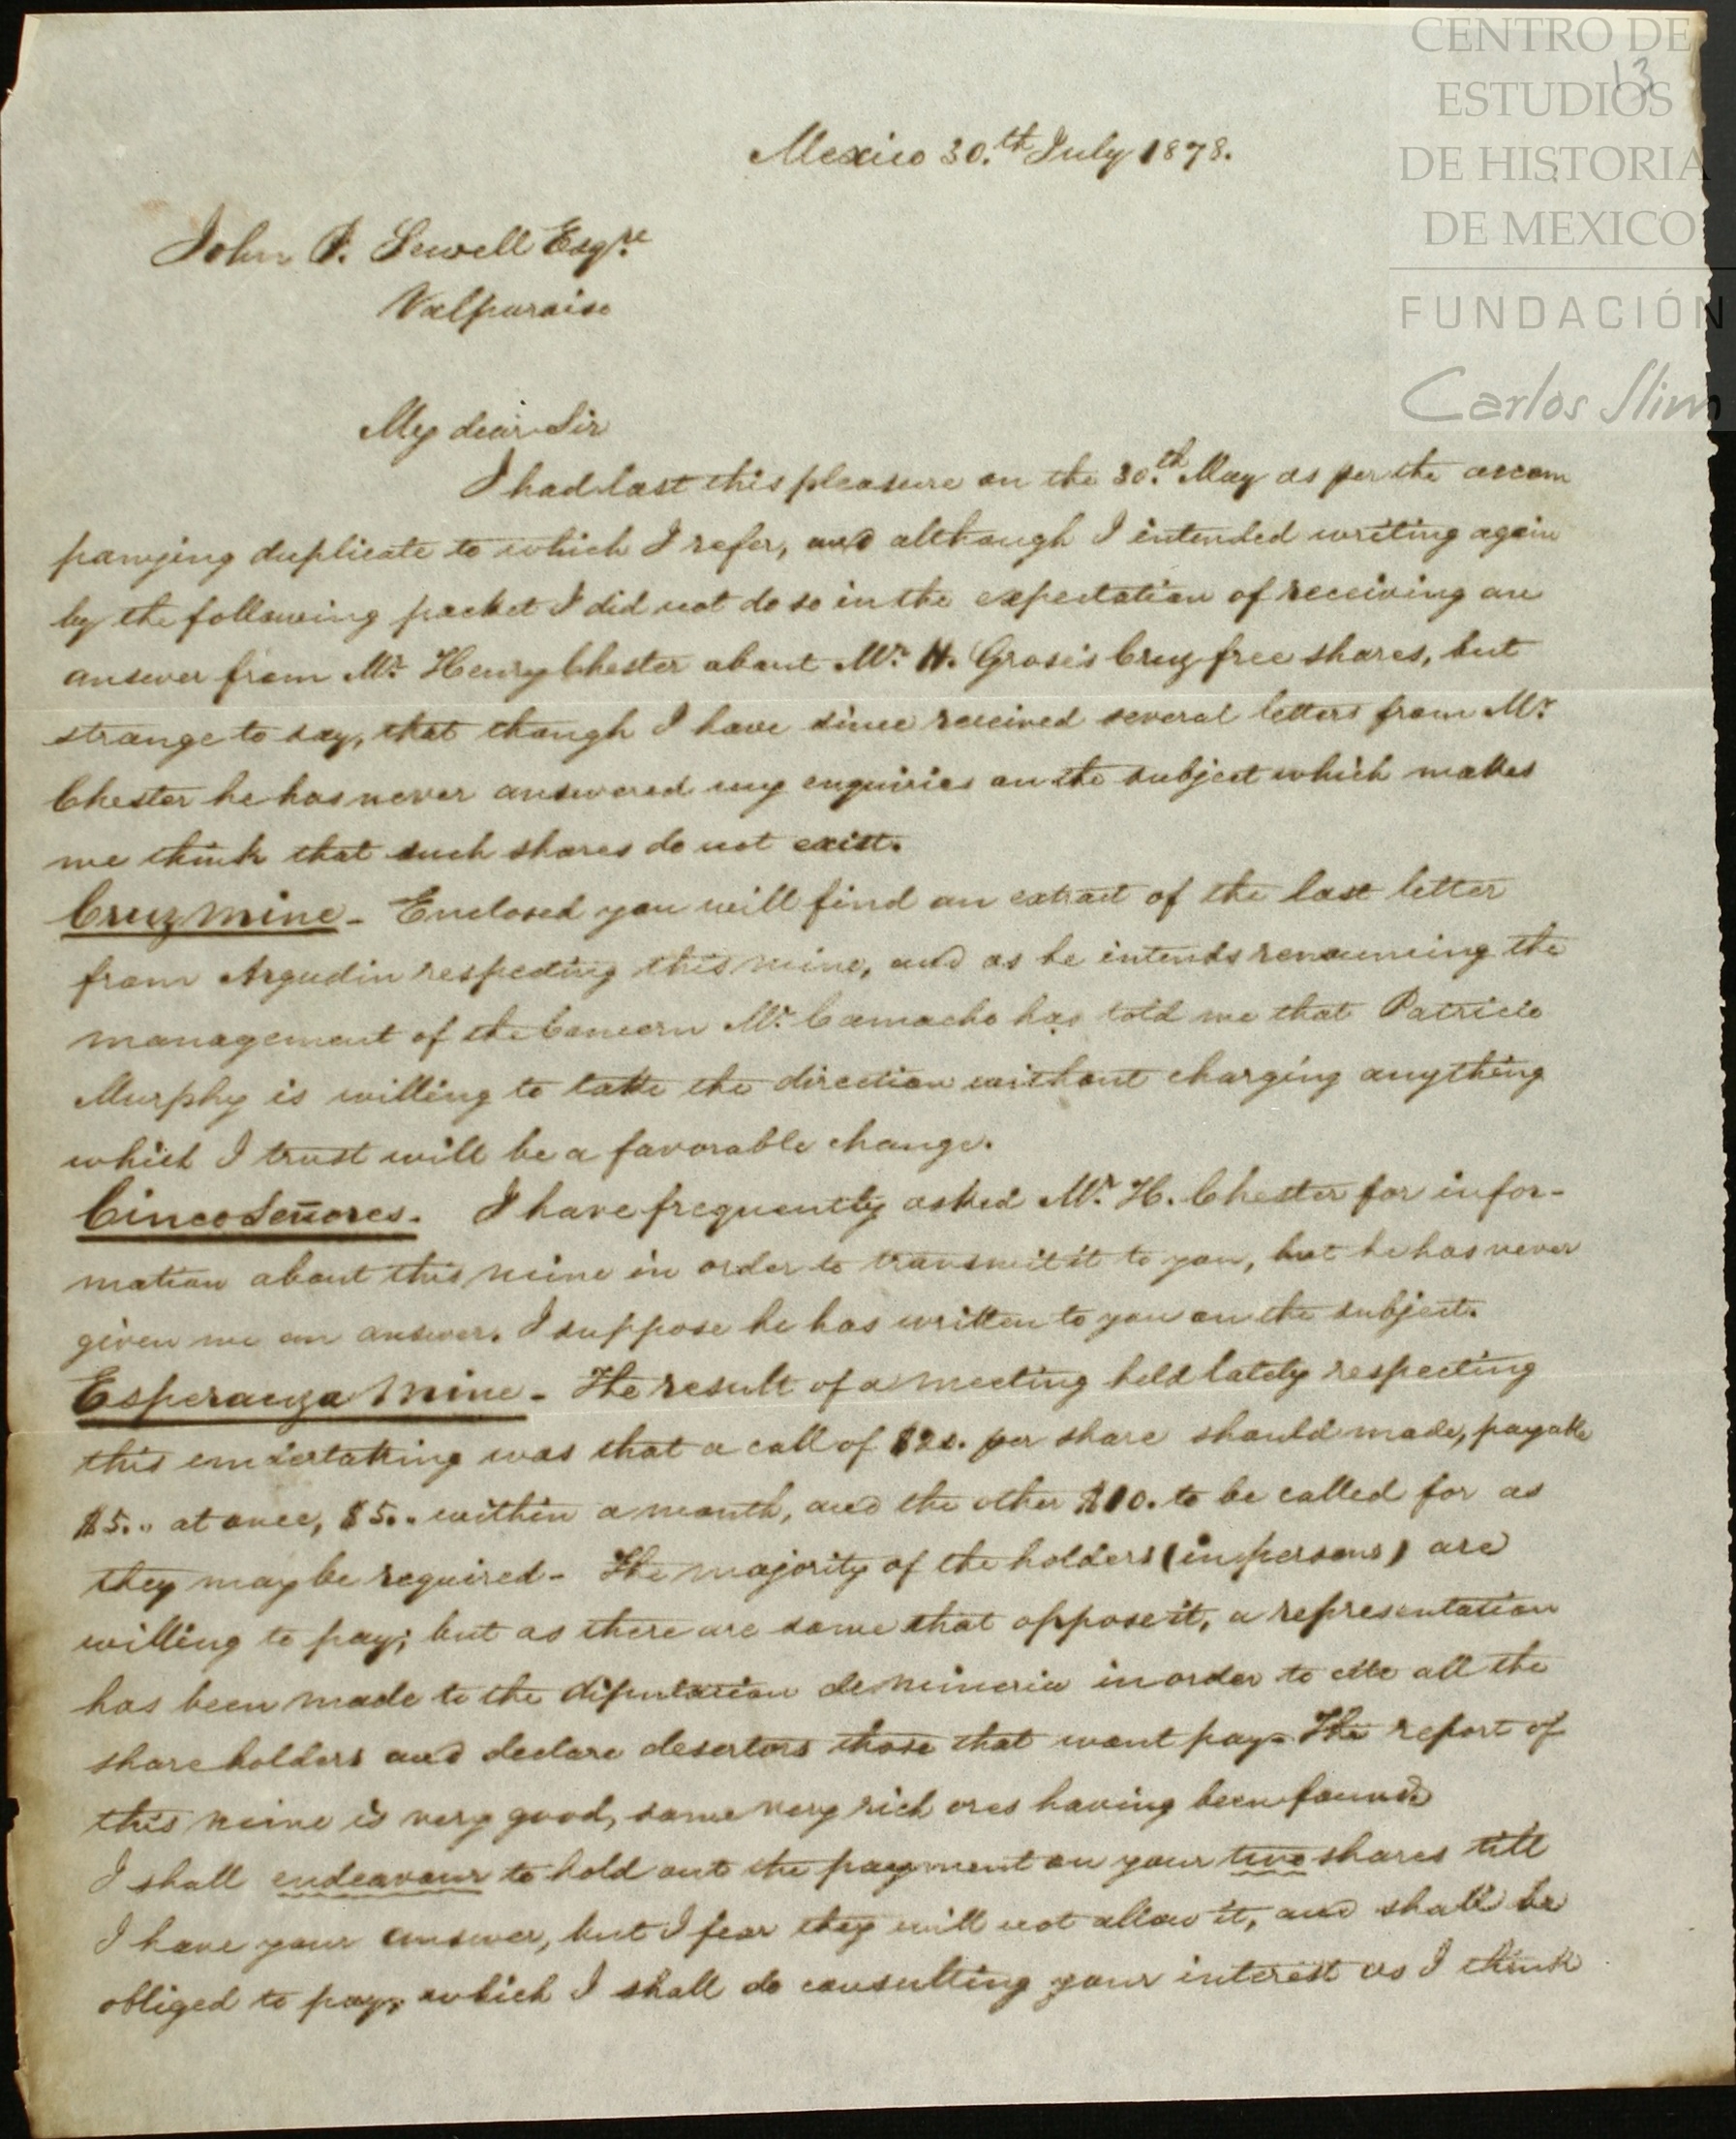 CENTRO DE
ESTUDIOS
DE HISTORIA
DE MEXICO
FUNDACIÓN
Carlos Slim
13
Mexico 30.th July 1878.
John P. Sewell Esqre.
Valparaiso
My dear Sir
I had last this pleasure on the 30.th May as per the accom
panying duplicate to which I refer, and although I intended writing again
by the following packet I did not do so in the expectation of receiving an
answer from Mr. Henry Chester about Mr. H. Grose's Cruz free shares, but
strange to say, that though I have since received several letters from Mr.
Chester he has never answered my enquiries on the subject which makes
me think that such shares do not exist.
Cruz mine - Enclosed you will find an extract of the last letter
from Argudin respecting this mine, and as he intends renouncing the
management of the Concern Mr. Camacho has told me that Patricio
Murphy is willing to take the direction without charging anything
which I trust will be a favorable change.
Cinco Señores. I have frequently asked Mr. H. Chester for infor-
mation about this mine in order to transmit it to you, but he has never
given me an answer. I suppose he has written to you on the subject.
Esperanza Mine - The result of a meeting held lately respecting
this undertaking was that a call of $20. per share should made, payable
$5.. at once, $5.. within a month, and the other $10. to be called for as
they may be required - The majority of the holders (in persons) are
willing to pay; but as there are some that oppose it, a representation
has been made to the diputacion de mineria in order to cite all the
shareholders and declare desertors those that wont pay - The report of
this mine is very good, some very rich ores having been found.
I shall endeavour to hold out the payment on your two shares till
I have your answer, but I fear they will not allow it, and shall be
obliged to pay, which I shall do consulting your interest as I think